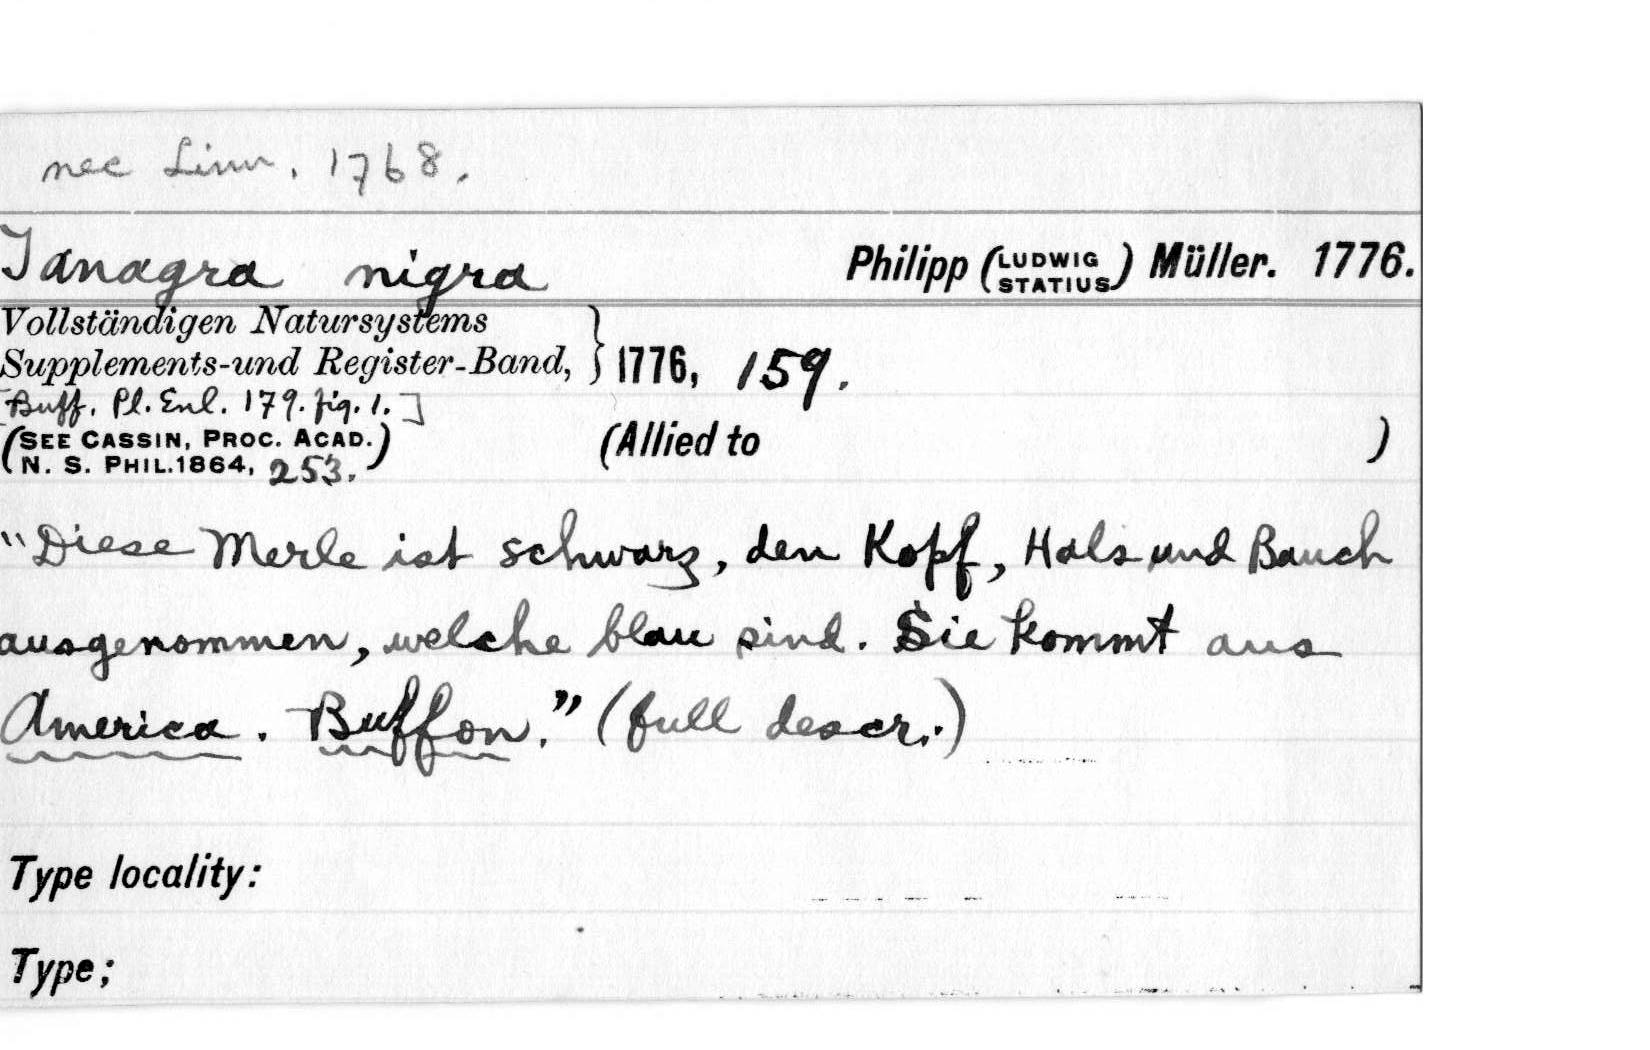 nec Linn. 1768.
Tanagra nigra Philipp (LUDWIG STATIUS) Müller. 1776.
Vollständigen Natursystems
Supplements-und Register-Band, } 1776, 159.
[Buff. Pl. Enl. 179. fig. 1.]
(SEE CASSIN, PROC. ACAD.
N. S. PHIL.1864, 253.) (Allied to )
"Diese Merle ist schwarz, den Kopf, Hals und Bauch
ausgenommen, welche blau sind. Sie kommt aus
America. Buffon." (full descr.)
Type locality:
Type;